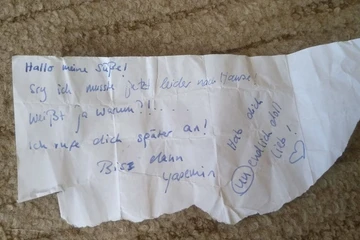 Hallo meine Süße!
Sry ich musste jetzt leider nach Hause!
Weißt ja warum?!!....
Ich rufe dich später an!
Bis dann
Yasemin
Hab dich
(un)endlich doll
lieb!